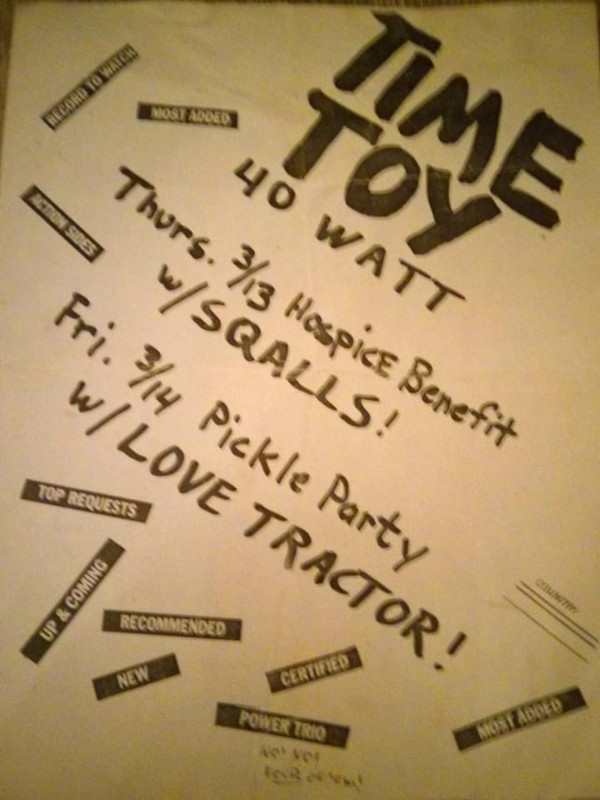 TIME
TOY
RECORD TO WATCH
MOST ADDED
40 WATT
ACTION SIDES
Thurs. 3/13 Hospice Benefit
w/ SQALLS!
Fri. 3/14 Pickle Party
w/ LOVE TRACTOR!
TOP REQUESTS
UP & COMING
RECOMMENDED
NEW
CERTIFIED
POWER TRIO
MOST ADDED
NO! NO!
FOUR of em!
COUNTRY